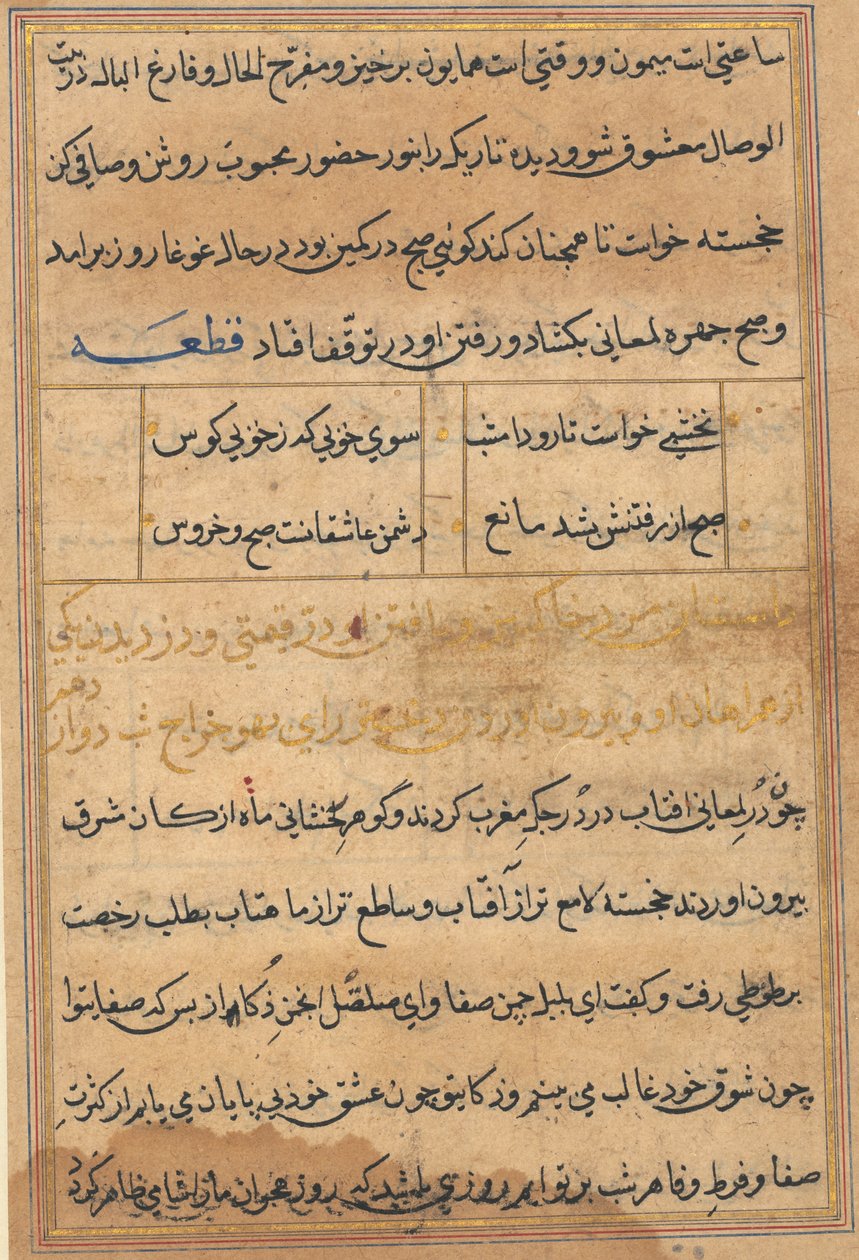 ساعتي است ميمون و وقتي است همايون برخيز و مفرّح الحال و فارغ البال در بيت
الوصال معشوق شو و ديده تاريك را بنور حضور محبوب روشن و صافي كن
خجسته خواست تا همچنان كند كوئي صبح در كمين بود در حال غوغا روز برامد
و صبح چهره لمعاني بكشاد و رفتن او در توقّف افتاد قطعه
نخشبي خواست تا رود امشب سوي خوبي كه ز خوبي كوس
صبح از رفتنش بشد مانع دشمن عاشقانست صبح و خروس
داستان در خاك و يافتن او درّ قيمتي و دزديدن يكي
از همراهان او و بيرون اوردن دختر راي بهوخراج شب دوازدهم
چون دُرِ لمعاني افتاب در دُرجكِ مغرب كردند و گوهرِ رخشاني ماه از كان شرق
بيرون اوردند خجسته لامع تر از آفتاب و ساطع تر از ماهتاب بطلب رخصت
بر طوطي رفت و كفت اي بلبل چمن صفا و اي صلصُل انجمنِ ذُكا از بس كه صفا يتوا
چون شوق خود غالب مي بينم و ذكا يتو چون عشق خود بي پايان مي يابم از كثرتِ
صفا و فرطِ وفا هر شب بر تو ايم روزي باشد كه روز هجران ما را شامي ظاهر كردد